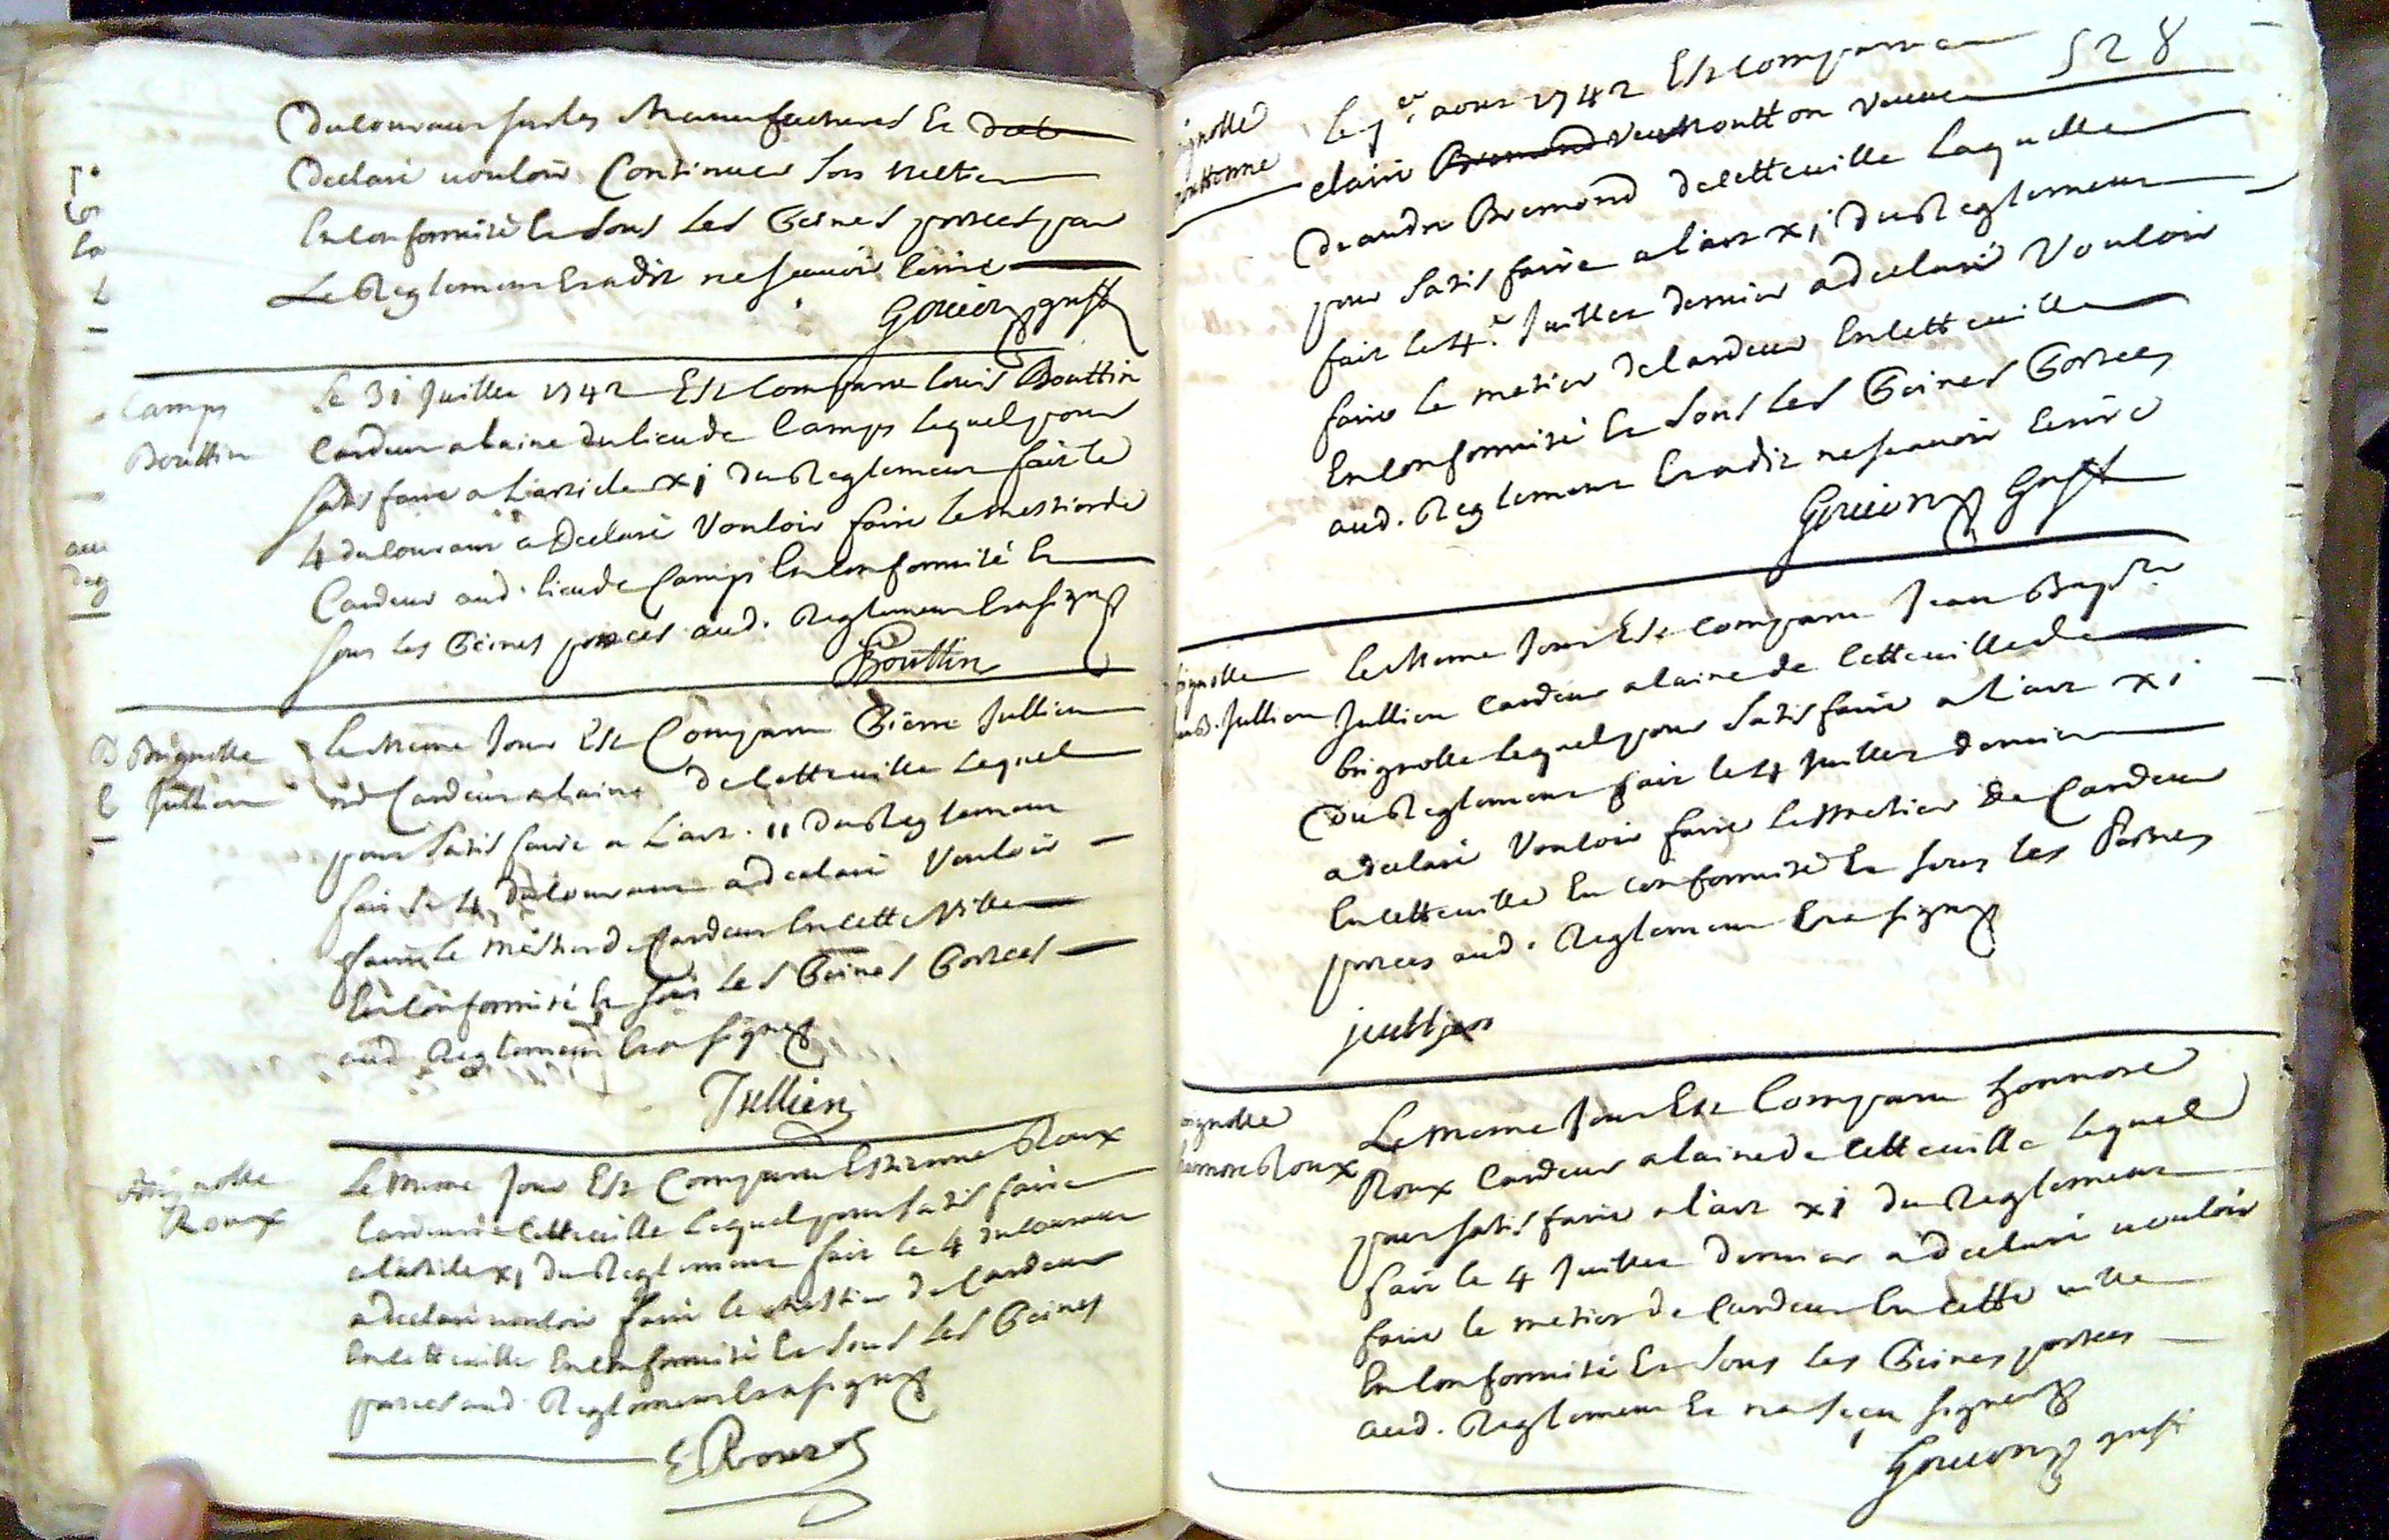 du courant sur les Manufactures Et
Declaré vouloir Continuer son mettier
En conformité Et sous les Peines portées par
Le Reglement Et a dit ne scavoir Ecrire
Gouion greff
Camps
Bouttin
Le 31 Juillet 1742 Est Comparu louis Bouttin
Cardeur a laine du lieu de Camps lequel pour
satisfaire a l'article xj du Reglement fait le
4 du courant a Declaré Vouloir faire le mestier de
Cardeur aud. lieu de Camps En conformité Et
sous les Peines portées aud. Reglement Et a signé
Bouttin
Brignolle
Jullien
Le Meme Jour Est Comparu Pierre Jullien
Cardeur a laine de cette ville Lequel
pour satisfaire a L'art. 11 du Reglement
fait Le 4 du courant a declaré Vouloir
faire le mestier de Cardeur En cette Ville
En conformité Et sous Les Peines Portées
aud. Reglement Et a signé
Jullien
Brignolle
Roux
Le Meme Jour Est Comparu Estienne Roux
Cardeur de cette ville Lequel pour satisfaire
a l'article xj du Reglement fait le 4 du courant
a declaré vouloir faire le Mestier de Cardeur
En cette ville En conformité Et sous Les Peines
portées aud. Reglement Et a signé
E Roux
528
Le 1er aout 1742 Est Comparu
claire Bremond Moutton veuve
De andre Bremond de cette ville Laquelle
pour satisfaire a l'art xj du Reglement
fait le 4e Juillet dernier a declaré Vouloir
faire Le metier de Cardeur En cette ville
En conformité Et sous Les Peines Portées
aud. Reglement Et a dit ne scavoir Ecrire
Gouion Greff
Jullien
Le Meme Jour Est Comparu Jean Bapte
Jullien Cardeur a laine de cette ville de
brignolle lequel pour satisfaire a l'art xi
du Reglement fait le 4 Juillet dernier
a declaré Vouloir faire Le Metier De Cardeur
En cette ville En conformité Et sous les Peines
portées aud. Reglement Et a signé
jullien
honnoré Roux
Le meme Jour Est Comparu honnoré
Roux Cardeur a laine de cette ville Lequel
pour satisfaire a l'art xi du Reglement
fait le 4 Juillet dernier a declaré vouloir
faire le metier de Cardeur En cette ville
En conformité Et sous les Peines portées
aud. Reglement Et n'a sceu signer
Gouion greff